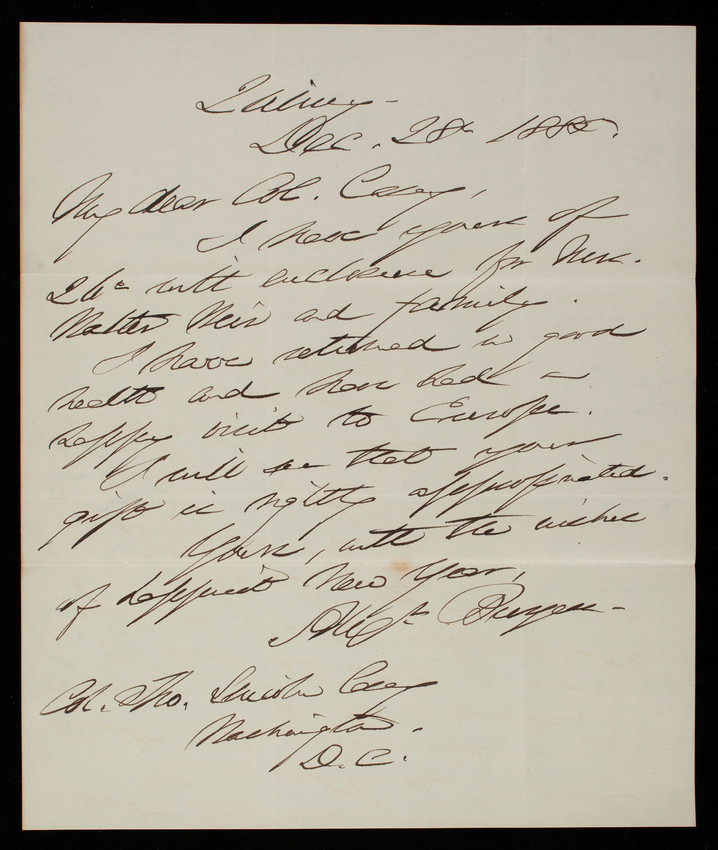 Quincy -
Dec. 28th 1885.
My dear Col. Casey,
I have yours of
26th with enclosure for Mrs.
Walter Weir and family.
I have returned in good
health and have had a
happy visit to Europe.
I will see that your
gift is rightly appropriated.
Yours, with the wishes
of happiest New Year,
Alex
Col. Tho. Lincoln Casey
Washington.
D. C.